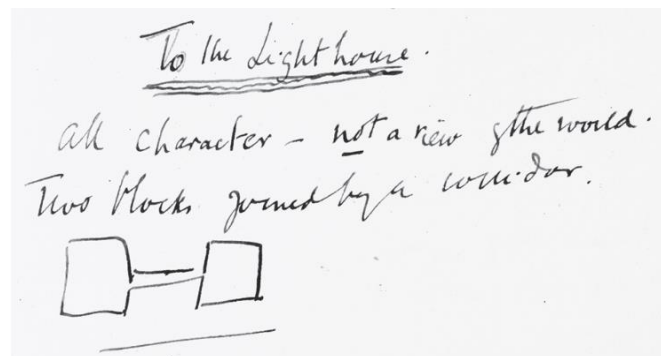 To the Lighthouse.
all character - not a view of the world.
Two blocks joined by a corridor.